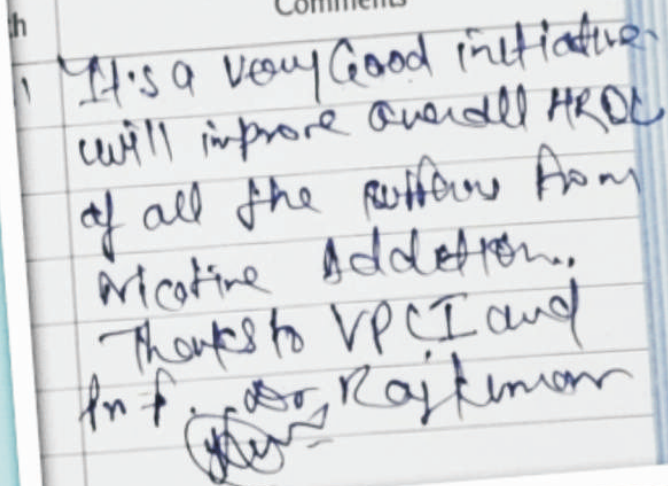 Comments
It's a very Good initiative.
will improve overall HRQL
of all the suffers from
nicotine Addction..
Thanks to VPCI and
Prof. Dr. Rajkumar